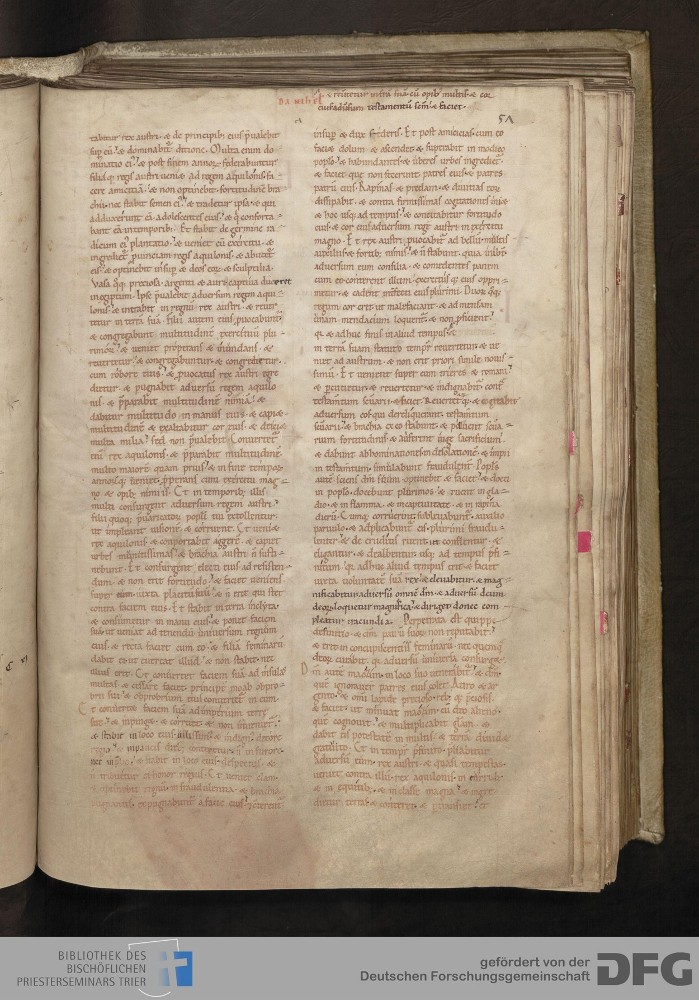 & reuertetur in terra sua cu opib; multis & cor
danihel
eius aduersum testamentu scm & faciet.
54
rabitur rex austri & de principib; eius pualebit
sup eu & dominabit dicione. Multa enim do
minatio ei & post finem annor federabuntur
filia q regis austri ueniet ad regem aquilonis fa
cere amicitia & non optinebit fortitudine bra
chii nec stabit semen ei & tradetur ipsa & qui
adduxerunt ea adolescentes eius & q conforta
bant ea intemporib; Et stabit de germine ra
dicum ei plantatio & ueniet cu exercitu &
ingrediet puinciam regis aquilonis & abutet
eis & optinebit insup & deos eor & sculptilia
Vasa qq preciosa argenti & auri captiua ducet
inegyptum. Ipse pualebit aduersum regem aqui
lonis & intrabit in regnu rex austri & reuer
tetur in terra sua. filii autem eius puocabunt
& congregabunt multitudine exercituu plu
rimor & ueniet properans & inundans &
reuertetur & congregabuntur & congredietur
cum robore eius & puocatus rex austri egre
dietur & pugnabit aduersu regem aquilo
nis & pparabit multitudine nimia &
dabitur multitudo in manus eius & capi&
multitudine & exaltabitur cor eius & deiciet
multa milia sed non pualebit. Conuertet
eni rex aquilonis & pparabit multitudine
multo maiore quam prius & in fine tempor
annor q ueniet pperans cum exercitu mag
no & opib; nimiis. Et in temporib; illis
multi consurgent aduersum regem austri
filii quoq puaricator popli tui extollentur
ut impleant uisione & corruent. Et ueni&
rex aquilonis & comportabit aggere & capiet
urbes munitissimas & brachia austri n susti
nebunt. Et consurgent electi eius ad resisten
dum & non erit fortitudo & faciet ueniens
super eum iuxta placitu suu & n erit qui stet
contra faciem eius. Et stabit in terra inclyta
& consumetur in manu eius & ponet faciem
sua ut ueniat ad tenendu uniuersum regnum
eius & recta faciet cum eo & filia feminaru
dabit ei ut euertat illud & non stabit nec
illius erit. Et conuertet faciem sua ad insulas
multas & cessare faciet principe
bri sui & obprobrium eius conuertet in eum
Et conuertet faciem sua ad imperium terre
sue & inpinget & corruet & non inuenietur
& stabit in loco eius uilissimus & indign decore
regio & in paucis dieb; conteretur n in furore
nec in plio & stabit in loco eius despectus &
n tribuetur ei honor regius. Et ueniet clam
& optinebit regnu in fraudulentia & brachia
pugnantis expugnabunt a facie eius & conterent
insup & dux federis. Et post amicicias cum eo
faciet dolum & ascendet & superabit in modico
poplo & habundantes & uberes urbes ingrediet
& faciet que non fecerunt patres eius & patres
patru eius. Rapinas & predam & diuitias eor
dissipabit & contra firmissimas cogitationes inie
& hoc usq ad tempus & concitabitur fortitudo
eius & cor eius aduersum rege austri in exercitu
magno. Et rex austri puocabit ad bellu multis
auxiliis & fortib; nimis & n stabunt quia inibt
aduersum eum consilia & comedentes panem
cum eo conterent illum exercitus q eius oppri
metur & cadent interfecti eius plurimi. Duor qq
regum cor erit ut malefaciant & ad mensam
unam mendacium loquent & non pficient
qr adhuc finis in aliud tempus &
in terra suam statuto tempr reuertetur & ue
niet ad austrum & non erit priori simile nouis
simu. Et uenient super eum trieres & romani
& percutietur & reuertetur & indignabit contra
testamtum scuarii & faciet. Reuertet q & cogitabit
aduersum eos qui dereliquerunt testamtum
scuarii & brachia ex eo stabunt & polluent scua
rium fortitudinis & auferent iuge sacrificium
& dabunt abhominationem in desolatione & impii
in testamtum simulabunt fraudulent. Popls
aute sciens dm suum optinebit & faciet & docti
in poplo docebunt plurimos & ruent in gla
dio & in flamma & in captiuitate & in rapina
dieru. Cumq corruerint subleuabunt auxilio
paruulo & adplicabunt eis plurimi fraudu
lenter & de eruditis ruent ut conflentur &
eligantur & dealbentur usq ad tempus pfi
nitum qr adhuc aliud tempus erit & faciet
iuxta voluntate sua rex & eleuabitur & mag
nificabitur aduersu omne dm & aduersu deum
deor loquetur magnifica & diriget donec com
pleatur iracundia. Perpetrata est quippe
definitio & dm patru suor non reputabit
& erit in concupiscentiis feminaru nec quemq
deor curabit qr aduersu uniuersa consurget
Dm aute maozim in loco suo uenerabit & dm
que ignorauer patres eius colet auro & ar
gento & omi lapide precioso reb; q preciosis
& faciet ut muniat maozim cu deo alieno
que cognouit & multiplicabit glam &
dabit eis potestate in multis & terra diuidet
gratuito. Et in tempr pfinito pliabitur
aduersu eum rex austri & quasi tempestas
ueniet contra illu rex aquilonis in currib;
& in equitib; & in classe magna & ingre
dietur terras & conteret & ptransiet. Et
BIBLIOTHEK DES
BISCHÖFLICHEN
PRIESTERSEMINARS TRIER
gefördert von der
Deutschen Forschungsgemeinschaft
DFG